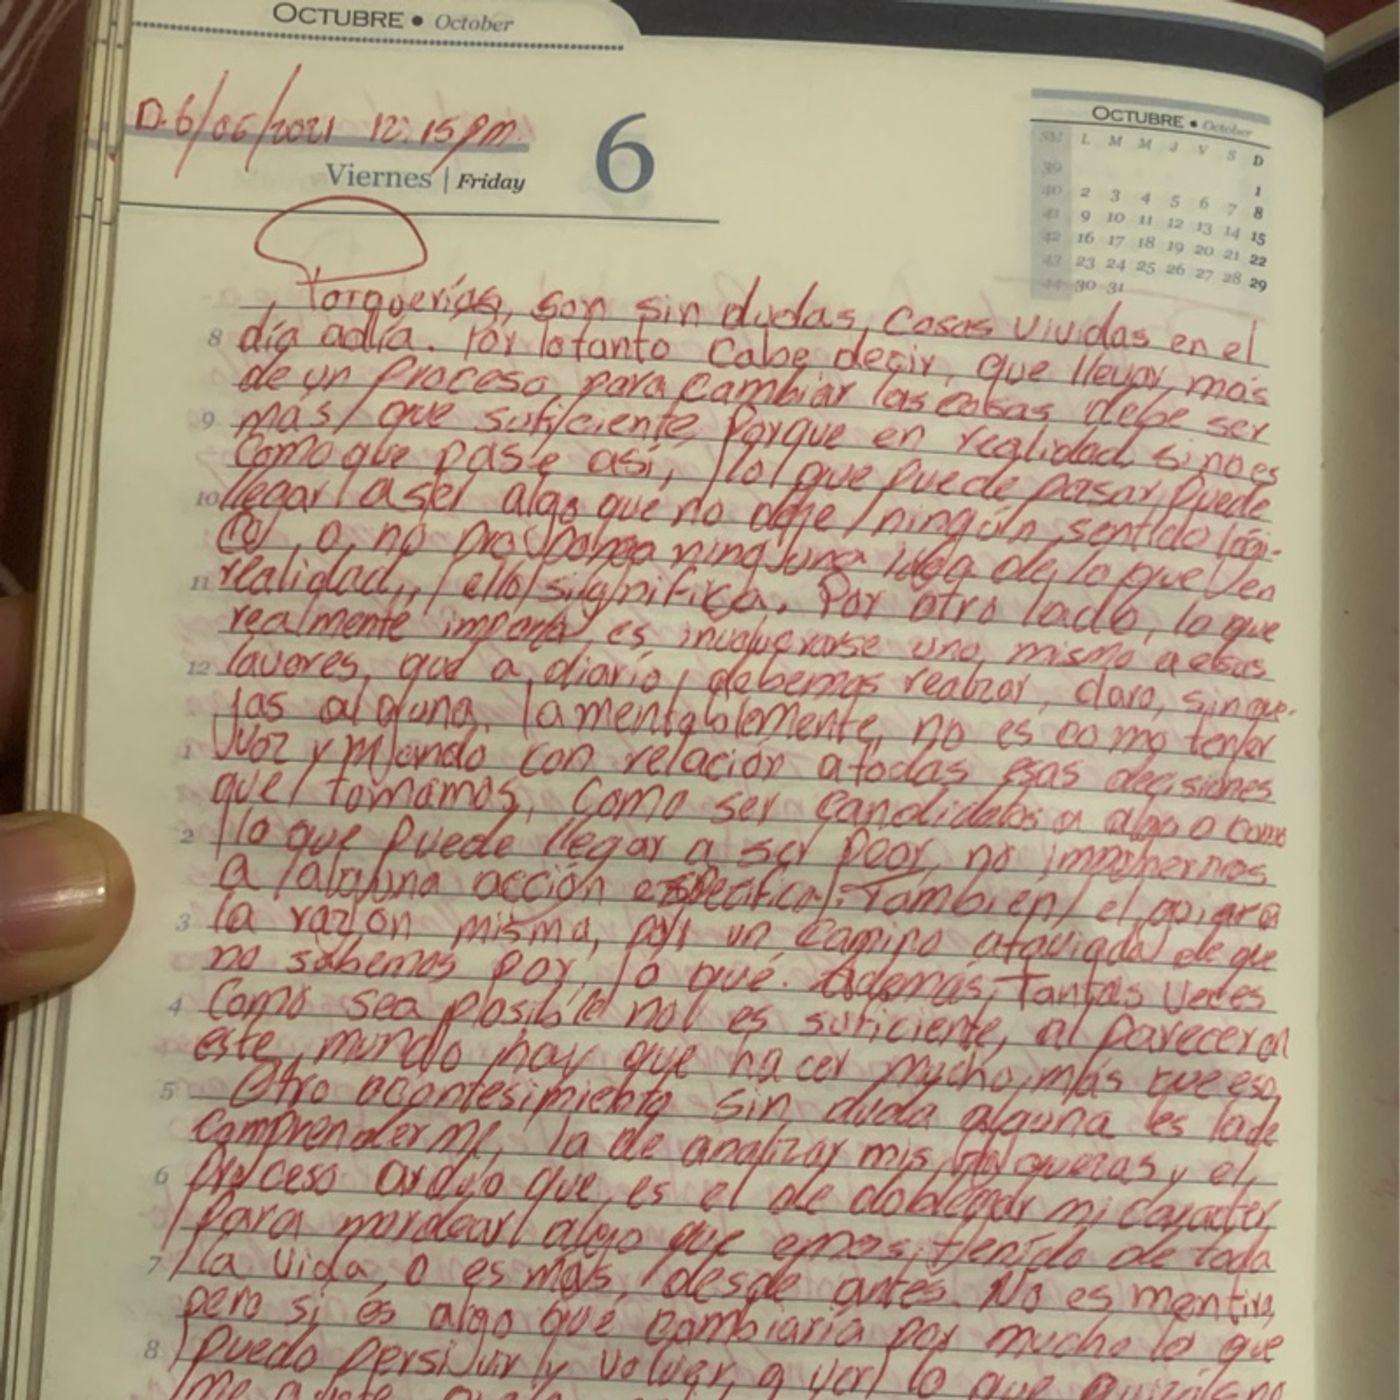 OCTUBRE • October
D. 6/06/2021 12:15 pm.
Viernes | Friday
6
OCTUBRE • October
SM L M M J V S D
39 1
40 2 3 4 5 6 7 8
41 9 10 11 12 13 14 15
42 16 17 18 19 20 21 22
43 23 24 25 26 27 28 29
44 30 31
Torquerías, son sin dudas, cosas vividas en el
8 día adía. Por lotanto cabe decir, que llevar más
de un proceso para cambiar las cosas debe ser
9 más que suficiente Porque en realidad sinoes
como que pase así, lo que puede pasar, puede
10 llegar a ser algo que no deje ningún sentido lógi-
co, o no ninguna idea de lo que en
11 realidad, ello significa. Por otro lado, lo que
realmente importa, es involucrarse uno mismo a esas
12 lavores, que a diario, debemos realizar, claro, sin que-
jas alguna, lamentablemente, no es como tener
1 voz y mando con relación atodas esas decisiones
que tomamos, como ser candidatos a algo o como
2 lo que puede llegar a ser peor, no imponernos
a alguna acción especifica. También, el guiar a
3 la razón misma, por un camino ataviado de que
no sabemos por lo qué. Además, Tantas veces
4 como sea posible no es suficiente, al parecer en
este mundo hay que hacer mucho más que eso,
5 Otro acontesimiento sin duda alguna es lade
comprenderme, la de analizar mis y el
6 proceso arduo que es el de doblegar mi caracter
Para algo que emos tenido de toda
7 la vida, o es mas, desde antes. No es mentira,
pero si es algo que cambiaria por mucho lo que
8 puedo y volver a lo que
me